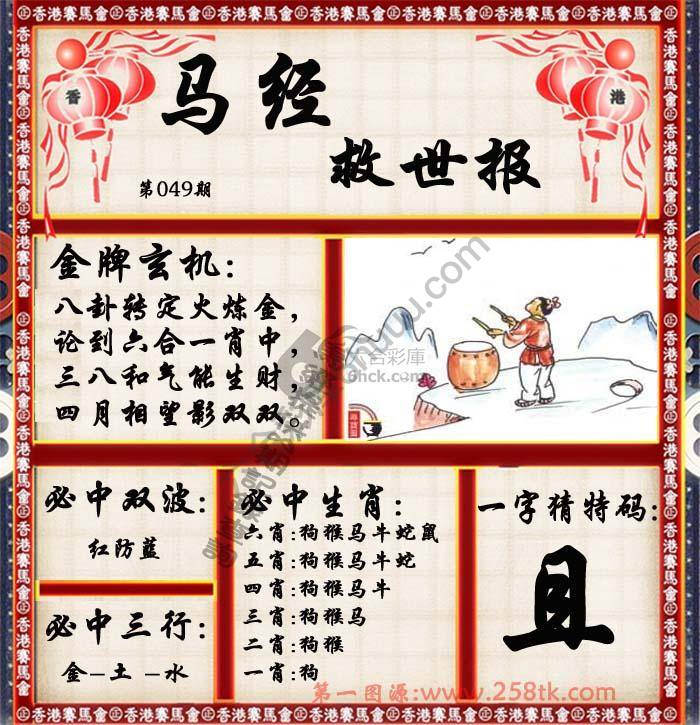 香港賽馬會
香
港
马经
救世报
第049期
金牌玄机:
八卦转定火炼金,
论到六合一肖中,
三八和气能生财,
四月相望影双双。
六合彩庫
必中双波:
红防蓝
必中三行:
金-土 -水
必中生肖:
六肖:狗猴马牛蛇鼠
五肖:狗猴马牛蛇
四肖:狗猴马牛
三肖:狗猴马
二肖:狗猴
一肖:狗
一字猜特码:
且
第一图源:www.258tk.com